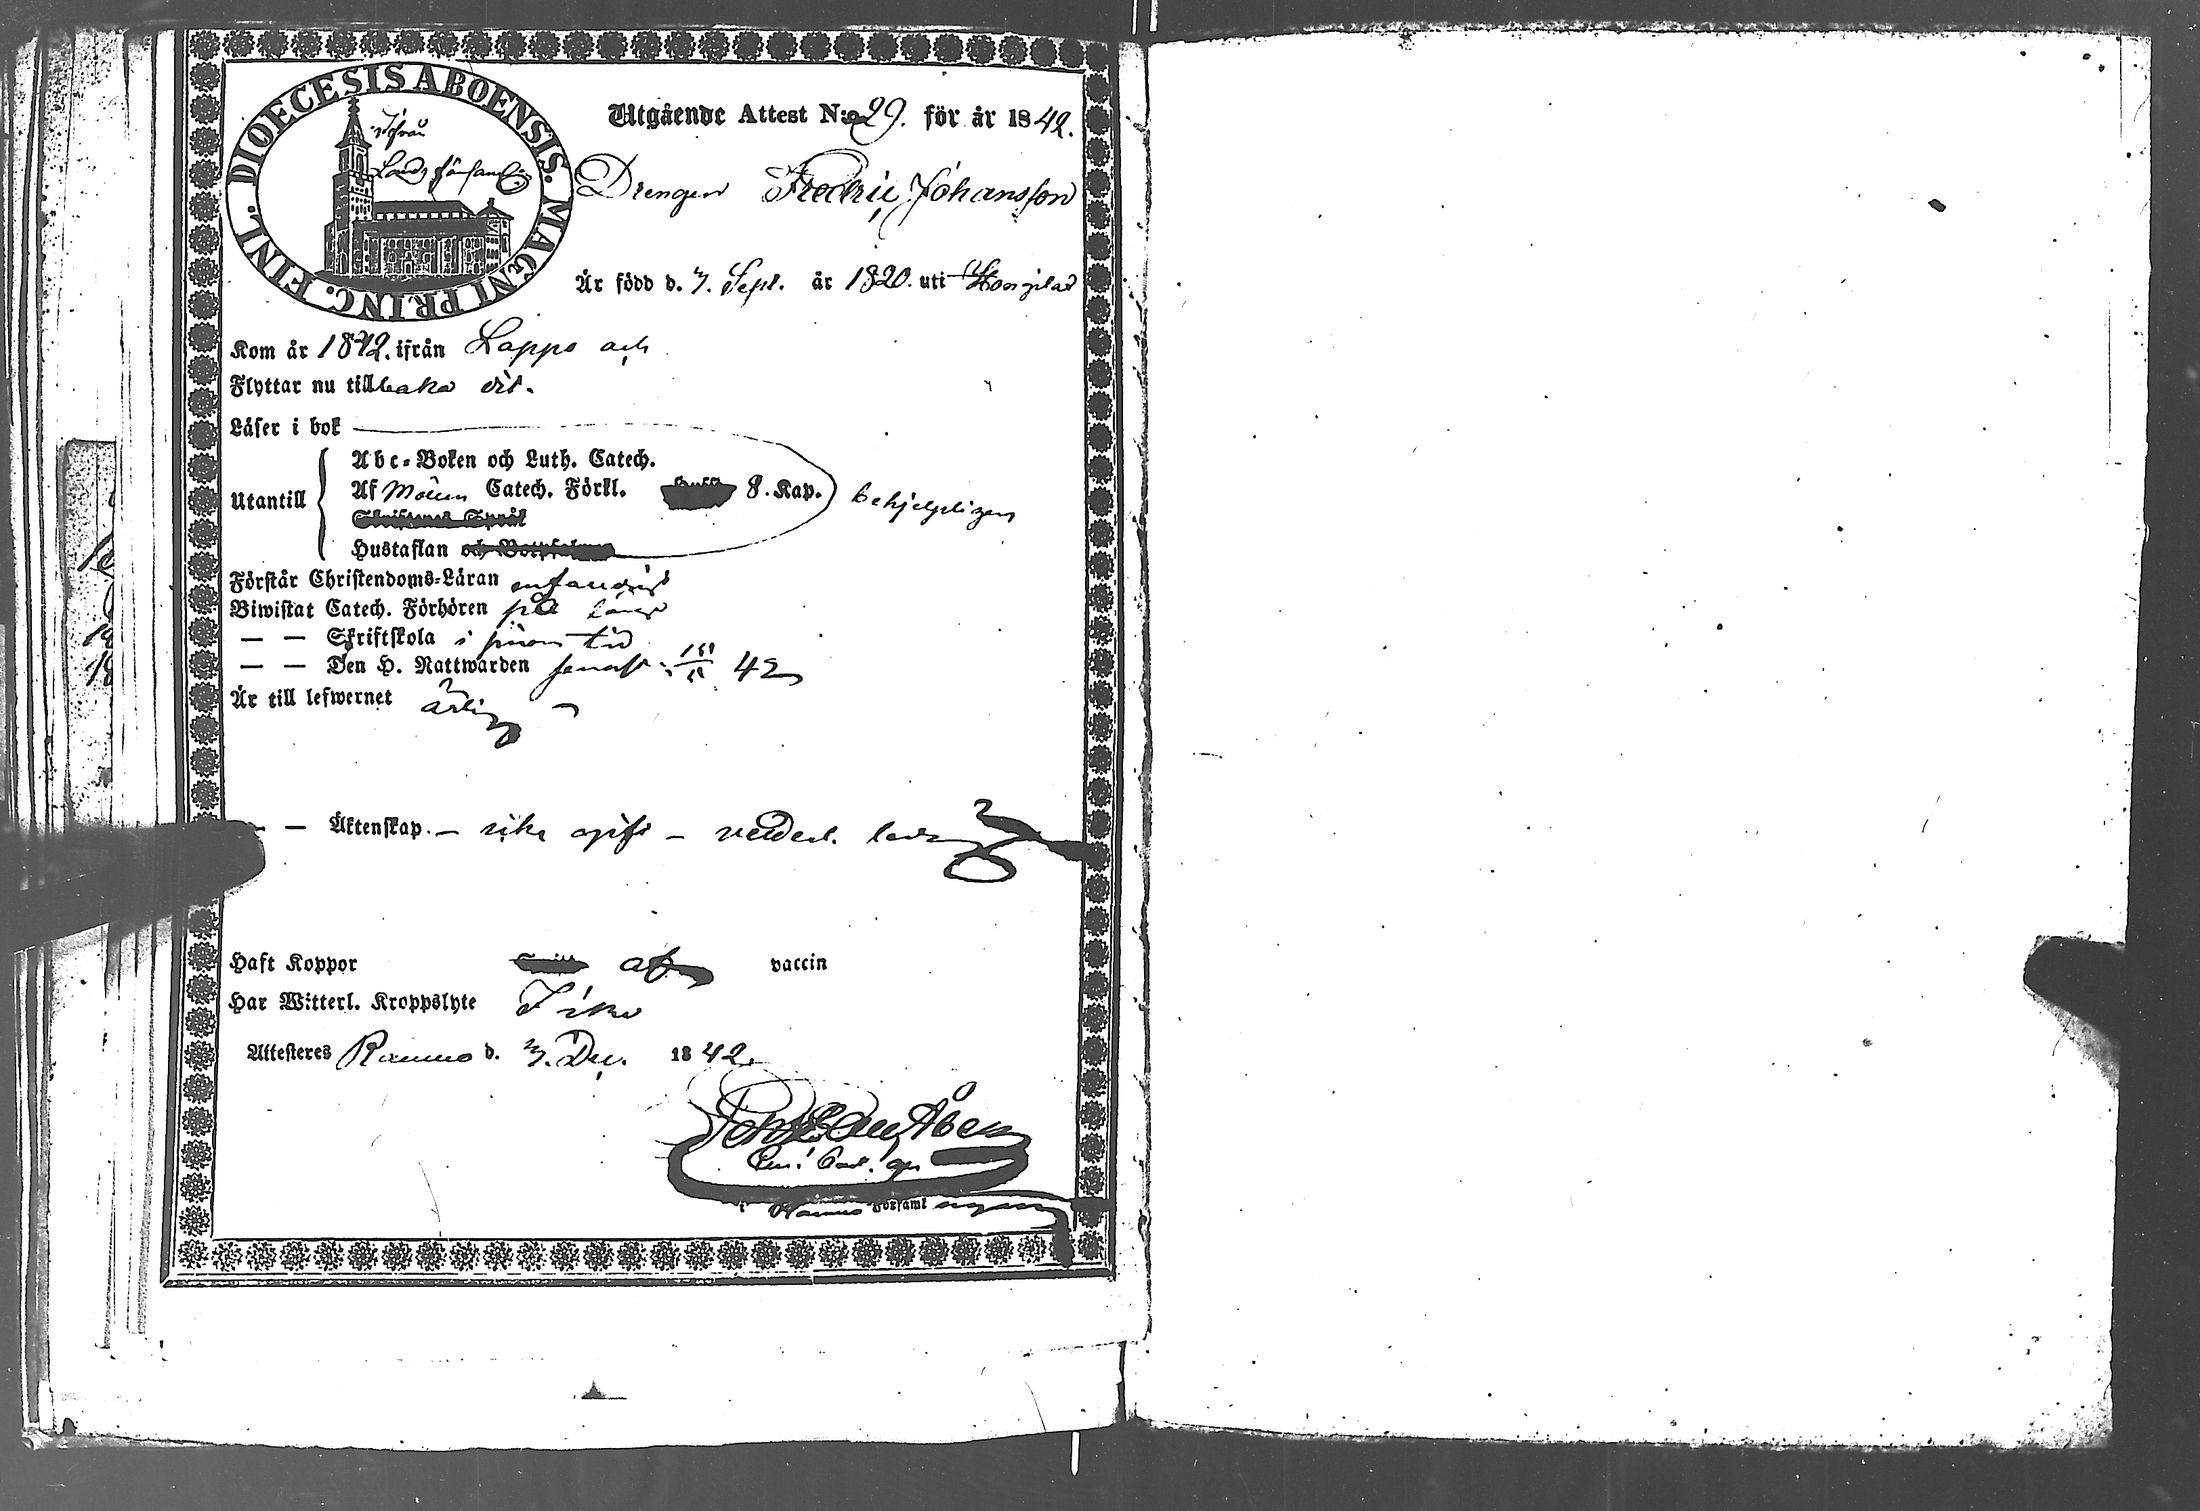 DIOECESIS ABOENSIS. MAGNI PRINC. FINL.
ifrån
Landsförsamling
Utgående Attest N:o 29. för år 1842.
Drengen Fredric Johansson
Är född d. 7. Sept. år 1820. uti
Kom år 1842. ifrån Lappo och
Flyttar nu tillbaka dit.
Läser i bok
Utantill
Abc-Boken och Luth. Catech.
Af Catech. Förkl. 8. Kap. behjelpligen
Skriftenes Språk
Hustaflan och Botpsalmer
Förstår Christendoms-Läran
Biwistat Catech. Förhören på
— — Skriftskola i sinom tid
— — Den H. Nattwarden senast 42
Är till lefwernet ärlig
— — Äktenskap. — icke gift — veterl. ledig
Haft Koppor af vaccin
Har Witterl. Kroppslyte Icke
Attesteres Raumo d. 7. Dec. 1842.
Åberg
i Raumo Församl